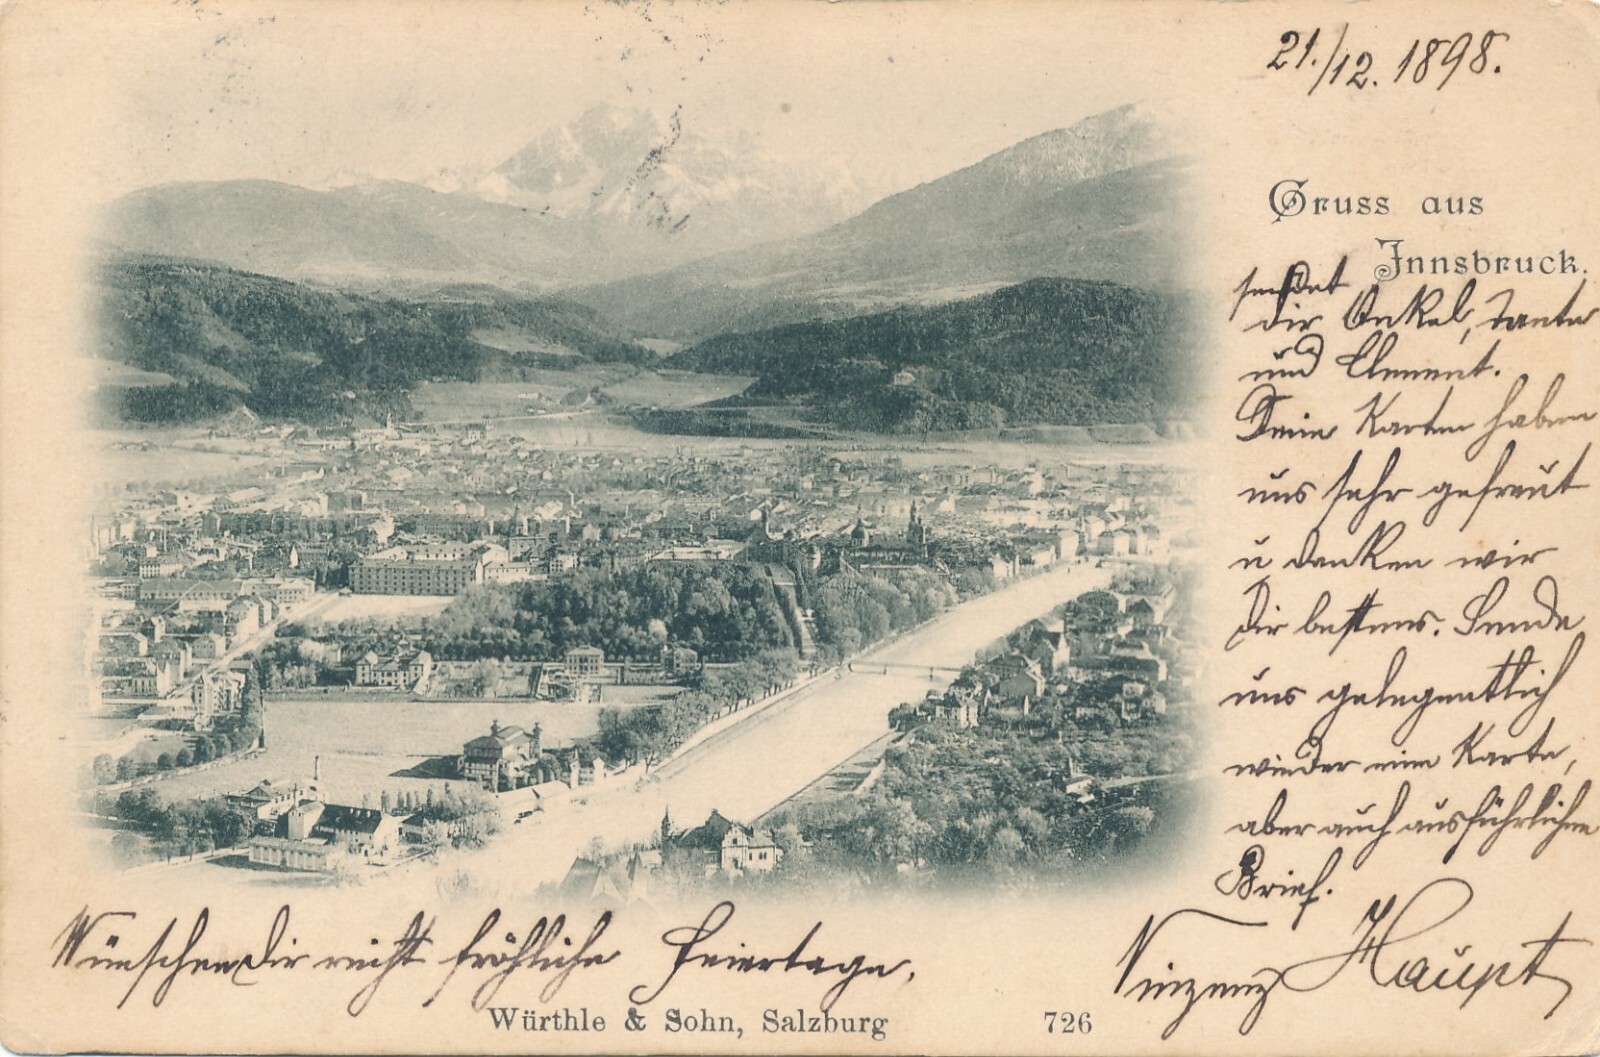 21./12. 1898.
Gruss aus
Innsbruck.
sendet
dir Onkel, Tante
und Clement.
Deine Karten haben
uns sehr gefreut
u danken wir
Dir bestens. Sende
uns gelegentlich
wieder eine Karte,
aber auch ausführlichen
Brief.
Wünschen Dir recht fröhliche Feiertage,
Vinzenz Haupt
Würthle & Sohn, Salzburg
726